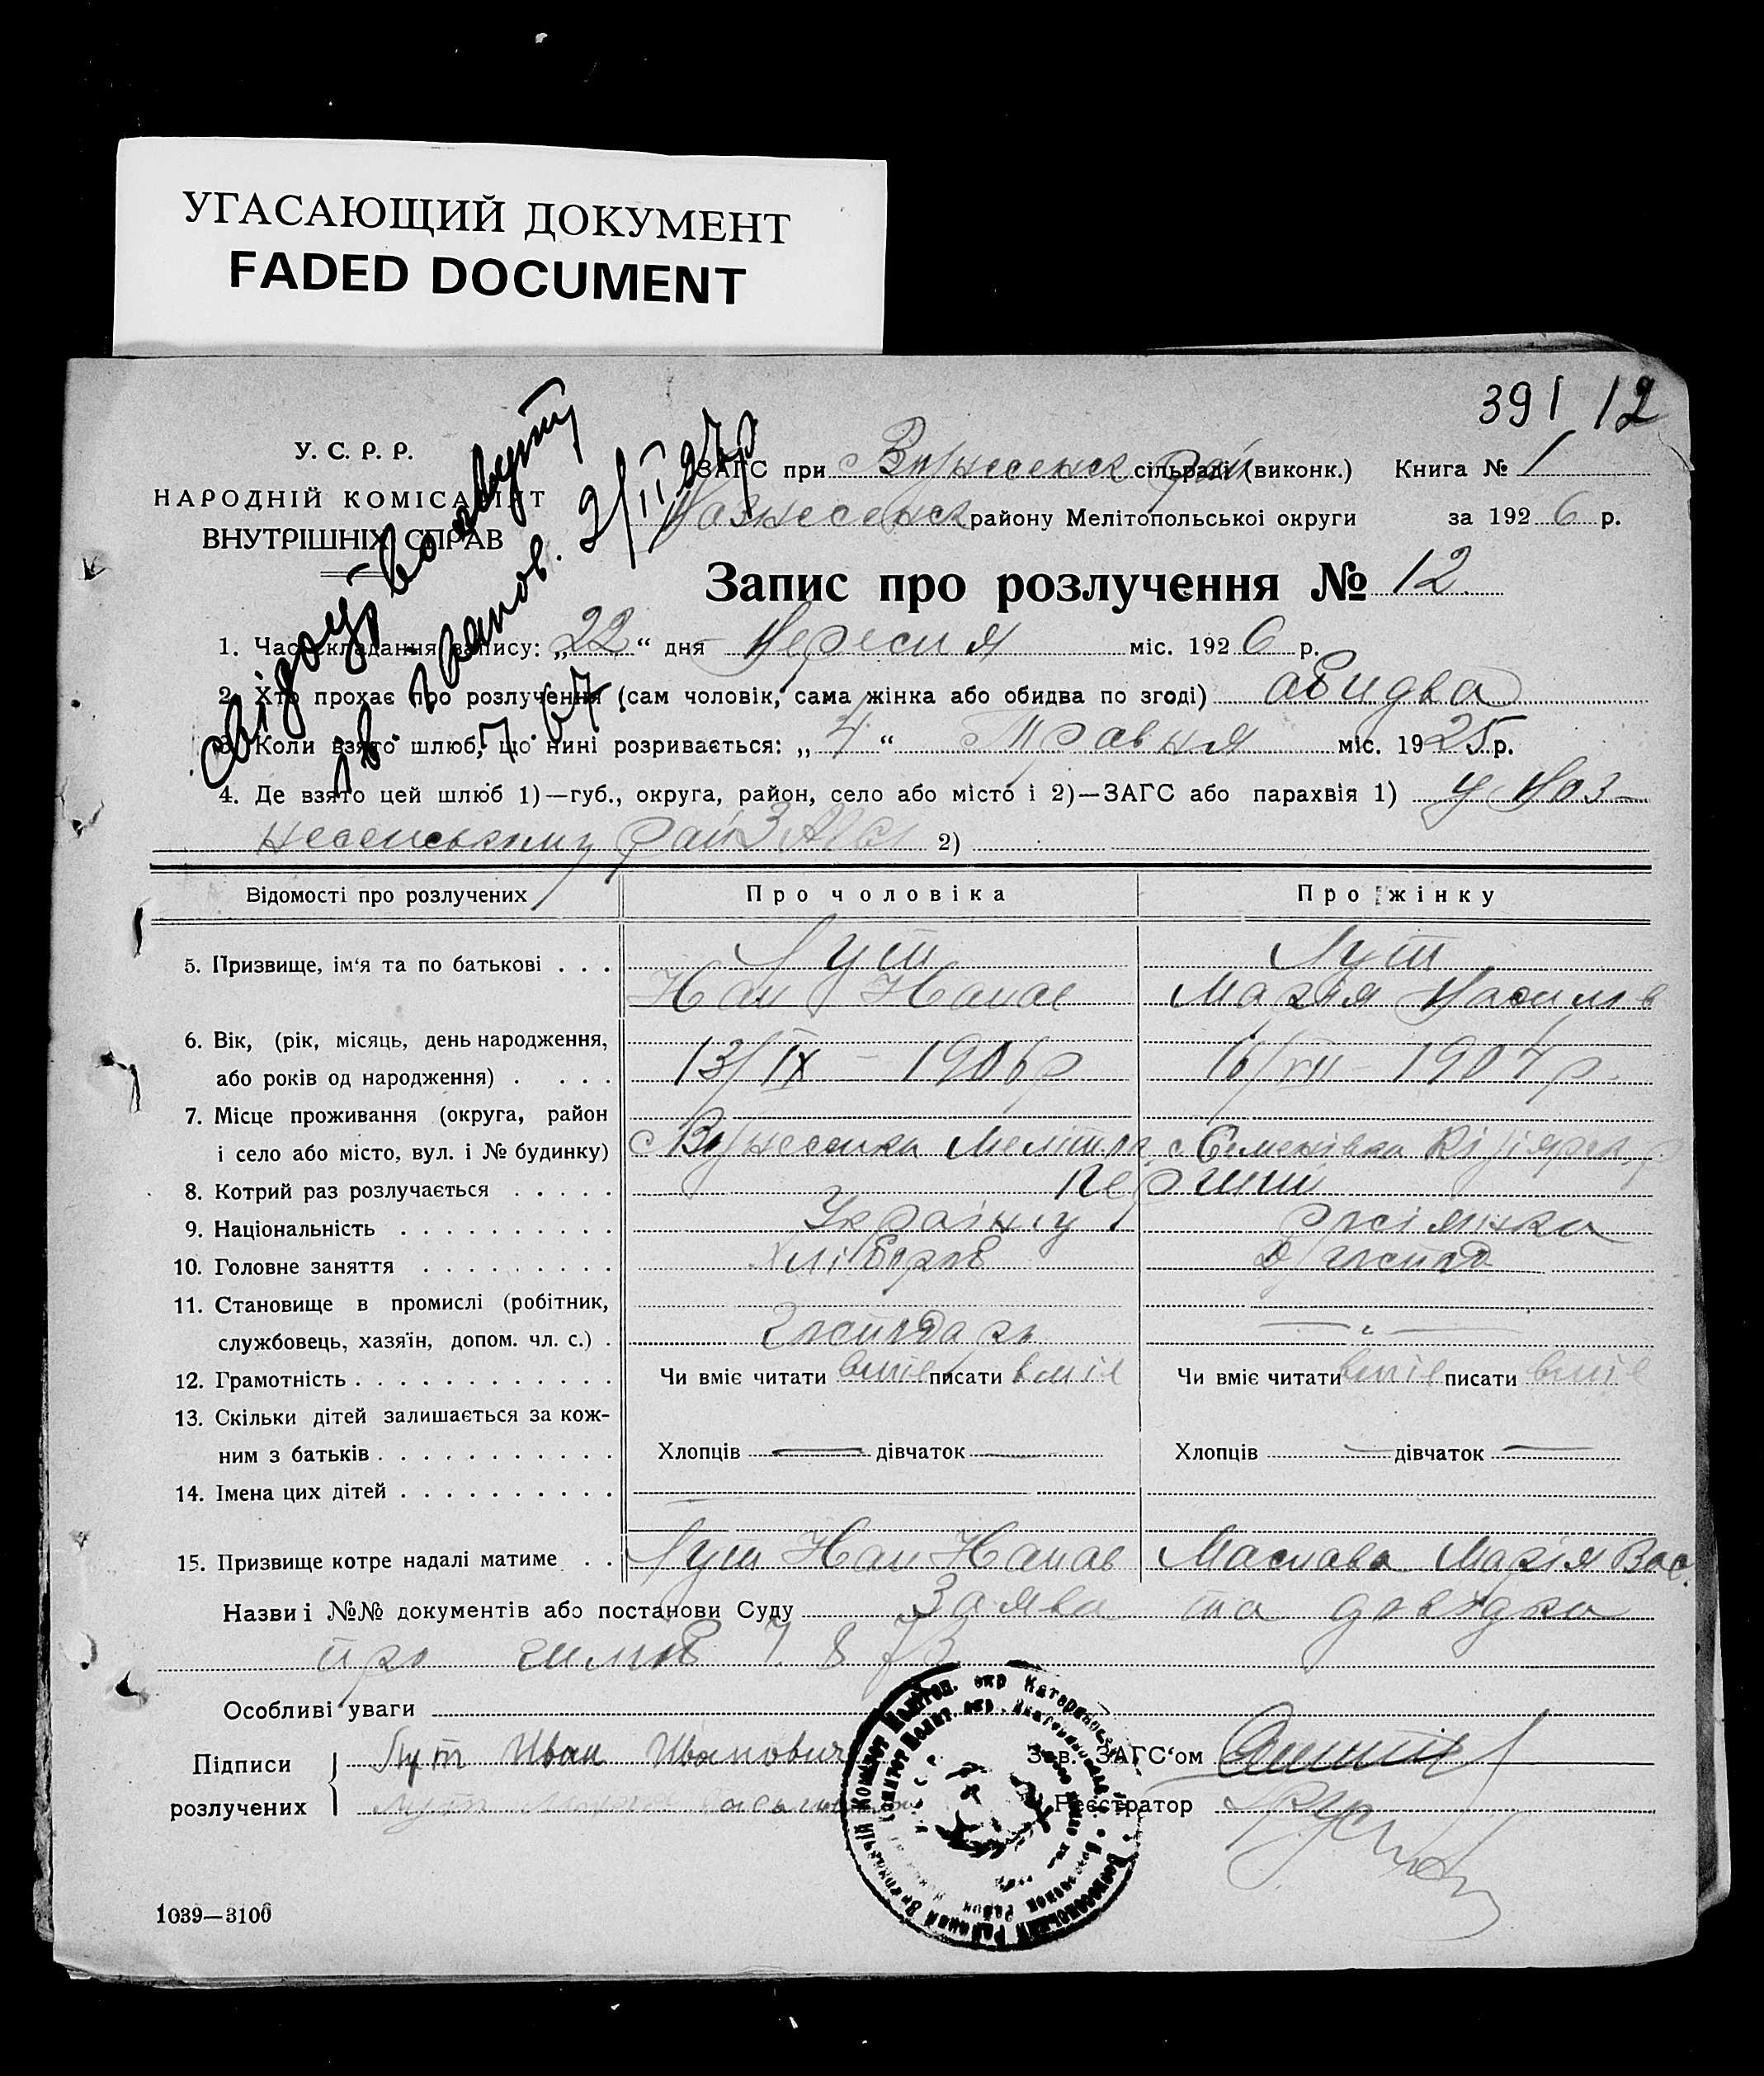 УГАСАЮЩИЙ ДОКУМЕНТ
FADED DOCUMENT
391 12
У. С. Р. Р.
НАРОДНІЙ КОМІСАРІЯТ
ВНУТРІШНІХ СПРАВ
ЗАГС при Вознесенск рай сільраді (виконк.) Книга № 1
Вознесенск району Мелітопольської округи за 1926 р.
Запис про розлучення № 12.
1. Час складання запису: „22“ дня Вересня міс. 1926 р.
2. Хто прохає про розлучення (сам чоловік, сама жінка або обидва по згоді) обидва
3. Коли взято шлюб, що нині розривається: „4“ Травня міс. 1925 р.
4. Де взято цей шлюб 1)—губ., округа, район, село або місто і 2)—ЗАГС або парахвія 1) у Воз-
несенському рай ЗАГСі 2)
Відомості про розлучених Про чоловіка Про жінку
5. Призвище, ім‘я та по батькові . . . Лут Лут
Іван Іванов Марія Василів
6. Вік, (рік, місяць, день народження,
або років од народження) . . . . 13/IX – 1906 р 16/VII – 1904 р.
7. Місце проживання (округа, район
і село або місто, вул. і № будинку) с Вознесенка Мелітоп. с Семенівка Кізіярск. р
8. Котрий раз розлучається . . . . . перший
9. Національність . . . . . . . . . Українец росіянка
10. Головне заняття . . . . . . . . . Хлібороб
11. Становище в промислі (робітник,
службовець, хазяїн, допом. чл. с.) . Господарь — „ —
12. Грамотність . . . . . . . . . . . . Чи вміє читати вміє писати вміє Чи вміє читати вміє писати вміє
13. Скільки дітей залишається за кож-
ним з батьків . . . . . . . . . . . Хлопців — дівчаток — Хлопців — дівчаток —
14. Імена цих дітей . . . . . . . . . .
15. Призвище котре надалі матиме . . Лут Іван Іванов Маслова Марія Вас.
Назви і №№ документів або постанови Суду Заява та довідка
про шлюб
Особливі уваги
Підписи Лут Иван Иванович Зав. ЗАГС‘ом
розлучених Лут Мария Васильевна Реєстратор
1039—3106